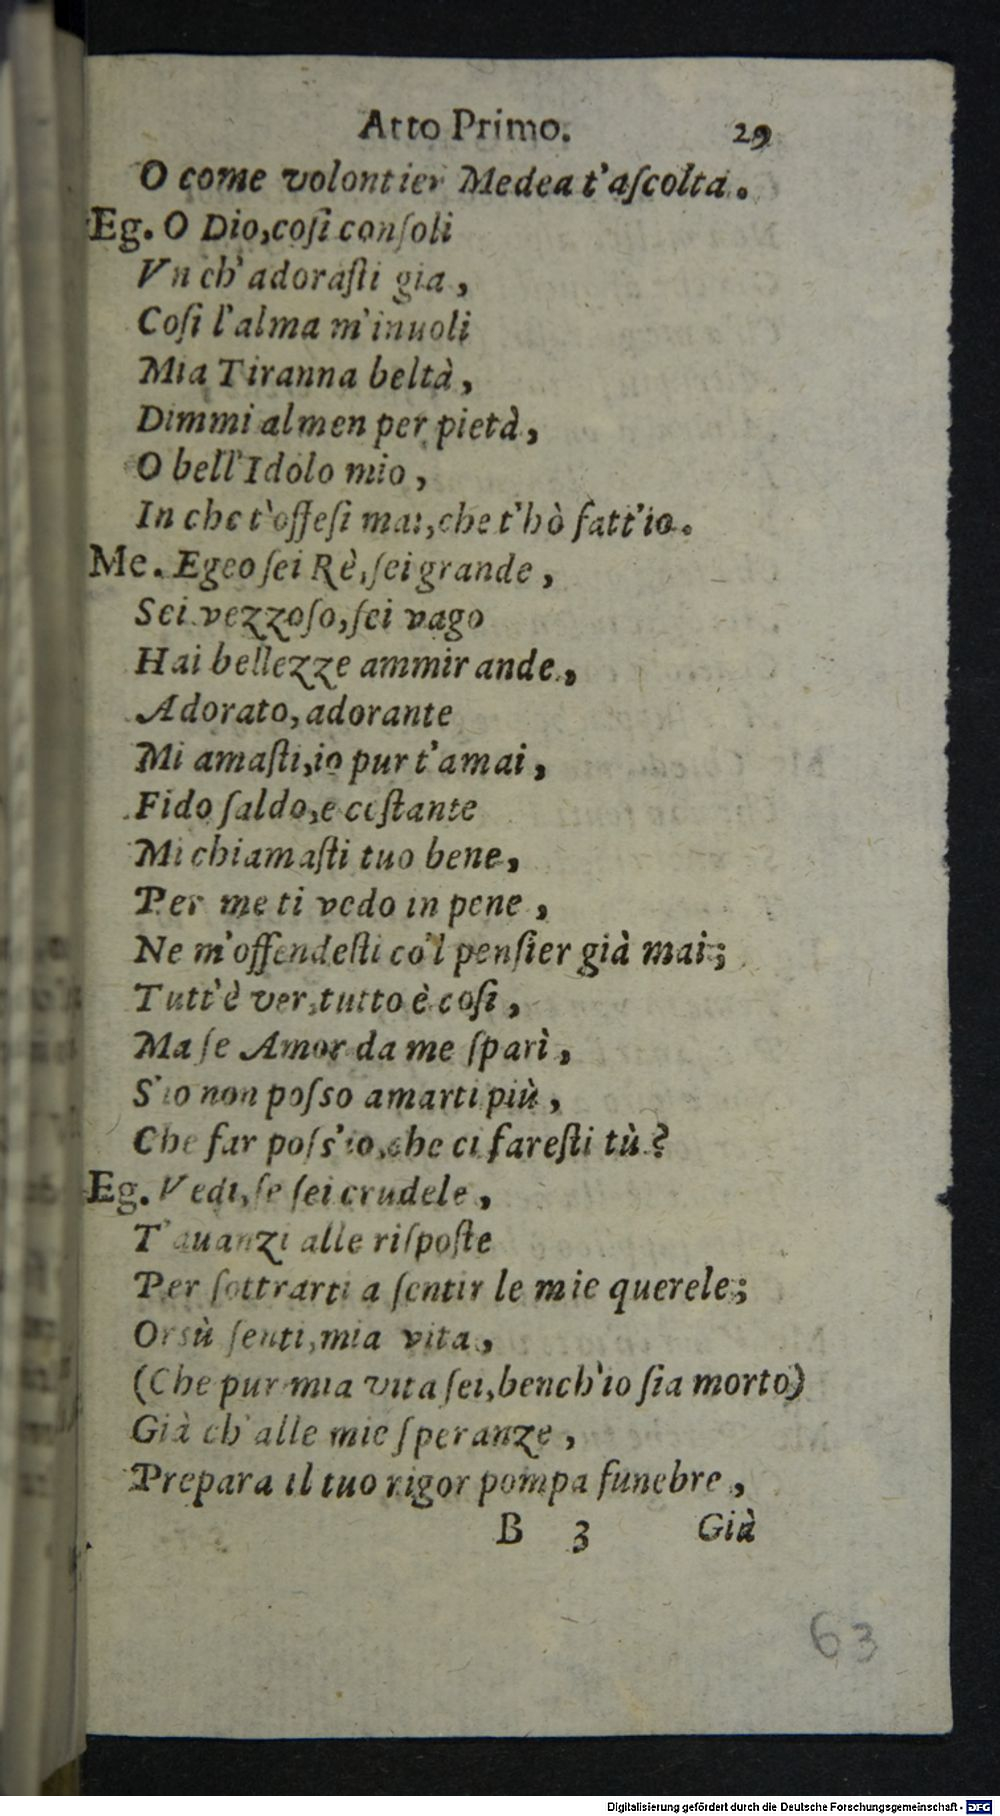 Atto Primo. 29
O come volontier Medea t'aſcolta.
Eg. O Dio, coſi conſoli
Vn ch' adoraſti gia,
Coſi l'alma m'inuoli
Mia Tiranna beltà,
Dimmi almen per pietà,
O bell'Idolo mio,
In che t'offeſi mai, che t'hò fatt'io.
Me. Egeo ſei Rè, ſei grande,
Sei vezzoſo, ſei vago
Hai bellezze ammirande,
Adorato, adorante
Mi amaſti, io pur t'amai,
Fido ſaldo, e coſtante
Mi chiamaſti tuo bene,
Per me ti vedo in pene,
Ne m'offendeſti co'l penſier già mai;
Tutt'è ver, tutto è coſi,
Ma ſe Amor da me ſparì,
S'io non poſso amarti più,
Che far poſs'io, che ci fareſti tù?
Eg. Vedi, ſe ſei crudele,
T'auanzi alle riſpoſte
Per ſottrarti a ſentir le mie querele;
Orsù ſenti, mia vita,
(Che pur mia vita ſei, bench'io ſia morto)
Già ch' alle mie ſperanze,
Prepara il tuo rigor pompa funebre,
B 3 Già
63
Digitalisierung gefördert durch die Deutsche Forschungsgemeinschaft - DFG